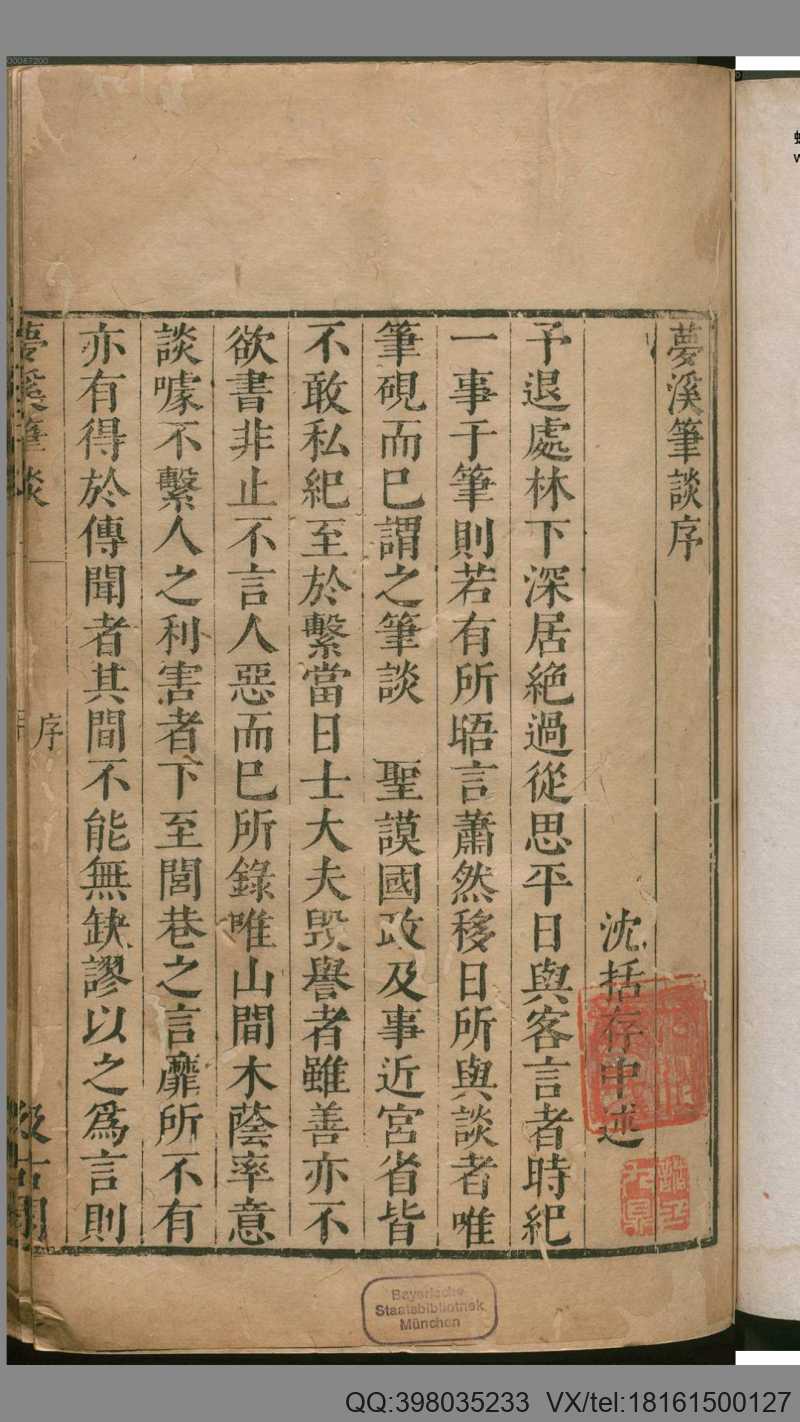 夢溪筆談序
沈括存中述
予退處林下深居絶過從思平日與客言者時紀
一事于筆則若有所晤言蕭然移日所與談者唯
筆硯而已謂之筆談　聖謨國政及事近宮省皆
不敢私紀至於繫當日士大夫毀譽者雖善亦不
欲書非止不言人惡而已所錄唯山間木蔭率意
談噱不繫人之利害者下至閭巷之言靡所不有
亦有得於傳聞者其間不能無缺謬以之爲言則
夢溪筆談
序
汲古閣
Bayerische
Staatsbibliothek
München
QQ:398035233 VX/tel:18161500127